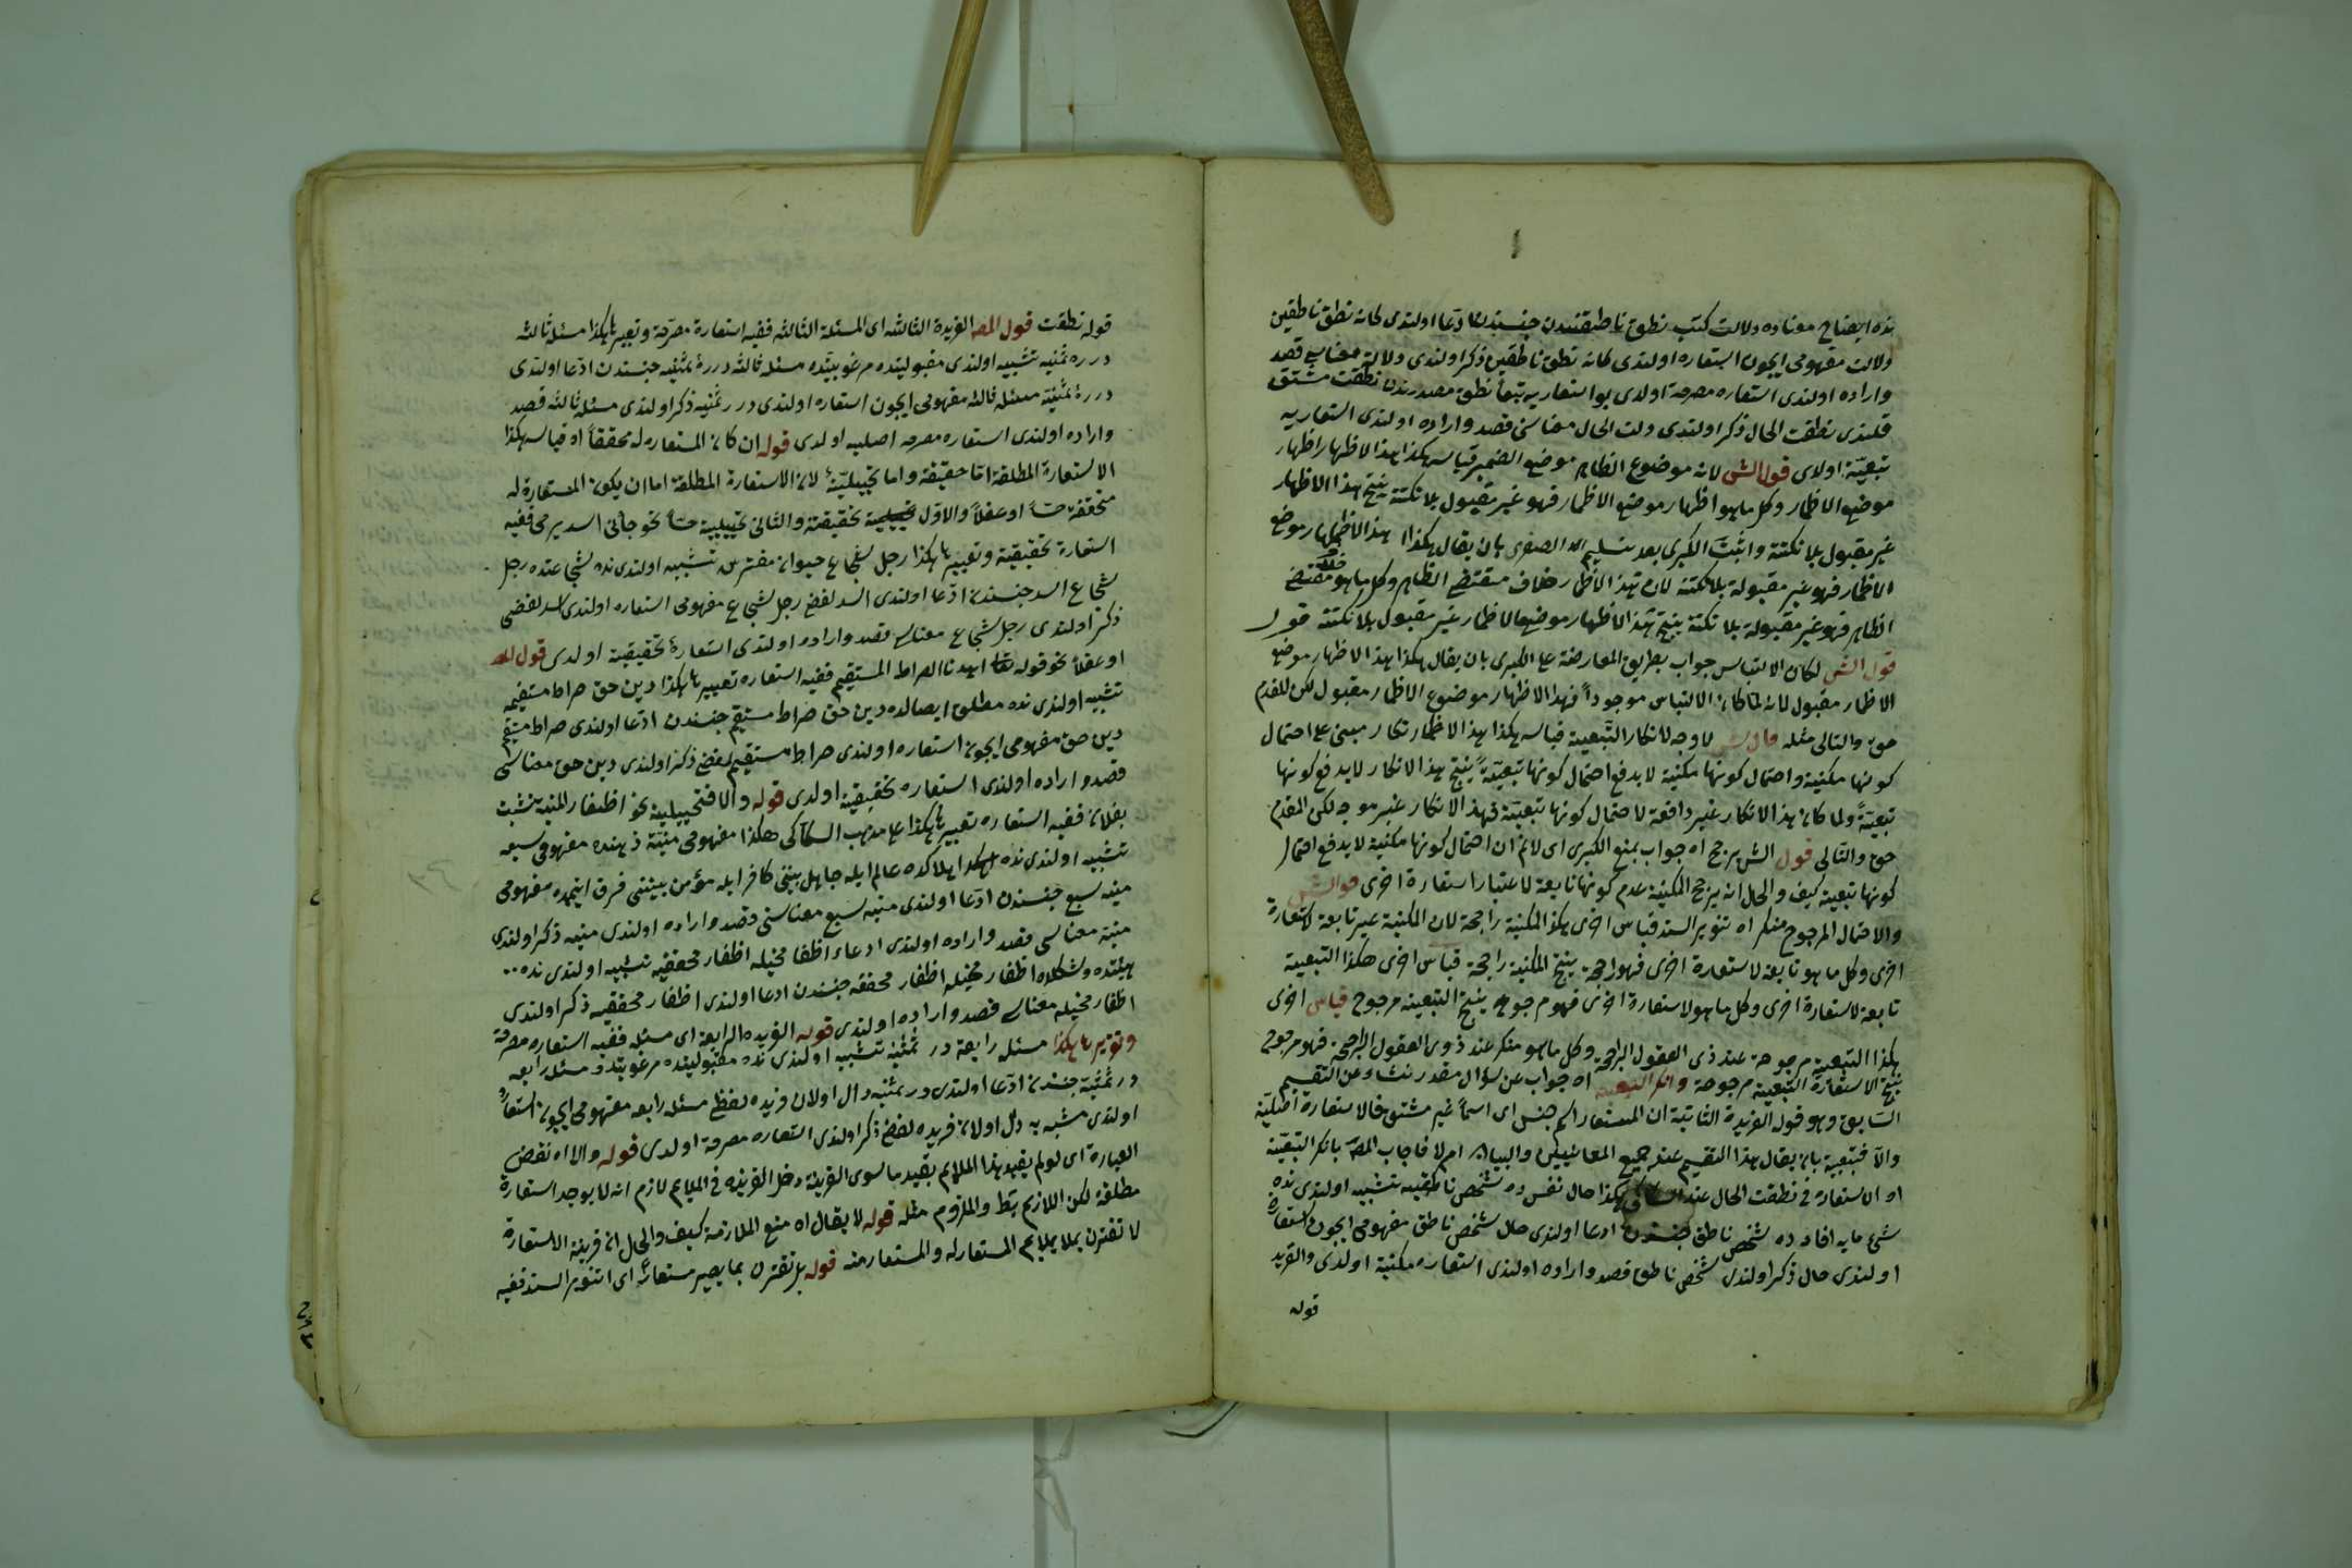 نده ايضاح معناده دلالت كتب نطق ناطقيندن جنسندن ادعا اولندى كانه نطق ناطقين
دلالت مفهومى ايچون استعاره اولندى كانه نطق ناطقين ذكر اولندى دلالة معناسى قصد
واراده اولندى استعاره مصرحه اولدى بو استعاريه تبعاً نطق مصدرندن نطقت مشتق
قلندى نطقت الحال ذكر اولندى دلت الحال معناسى قصد واراده اولندى استعاريه
تبعيّة اولاى قول الش لانه موضوع الظاهر موضع الضمير قياسه هكذا هذا الاظهار اظهار
موضع الاظمار وكل ما هو اظهار موضع الاظمار فهو غير مقبول بلا نكتة ينتج هذا الاظهار
غير مقبول بلا نكتة واثبت الكبرى بعد تسليم الصغرى بان يقال هكذا هذا الاظهار موضع
الاظمار فهو غير مقبولة بلا نكتة لان هذا الاظمار خلاف مقتضى الظاهر وكل ما هو خلاف مقتضى
الظاهر فهو غير مقبولة بلا نكتة ينتج هذا الاظهار موضع الاظمار غير مقبول بلا نكتة قوله
قول الش لكان الالتباس جواب بطريق المعارضة على الكبرى بان يقال هكذا هذا الاظهار موضع
الاظمار مقبول لانه لما كان الالتباس موجوداً فهذا الاظهار موضوع الاظمار مقبول لكن المقدم
حق والتالى مثله قال الش لا وجه لانكار التبعية قياسه هكذا هذا الانكار انكار مبنى على احتمال
كونها مكنية واحتمال كونها مكنية لا يدفع احتمال كونها تبعيّةً ينتج هذا الانكار لا يدفع كونها
تبعيّةً ولما كان هذا الانكار غير دافعة لاحتمال كونها تبعيّة فهذا الانكار غير موجه لكن المقدم
حق والتالى قول الش يرجح اه جواب بمنع الكبرى اى لا نم ان احتمال كونها مكنية لا يدفع احتمال
كونها تبعية كيف والحال انه يرجح المكنية عدم كونها تابعة لاعتبار استعارة اخرى قول الش
والاحتمال المرجوح منكر اه تنوير السند قياس اخرى هكذا المكنية راجحة لان المكنية غير تابعة لاستعارة
اخرى وكل ما هو تابعة لاستعارة اخرى فهو راجحة ينتج المكنية راجحة قياس اخرى هكذا التبعية
تابعة لاستعارة اخرى وكل ما هو لاستعارة اخرى فهو مرجوح ينتج التبعية مرجوح قياس اخرى
هكذا التبعية مرجوحة عند ذى العقول الراجحة وكل ما هو منكر عند ذوى العقول الراجحة فهو مرجوح
ينتج الاستعارة التبعية مرجوحة وانكر التبعية اه جواب عن سؤال مقدر نشاء عن التقسيم
السابق وهو قوله الفريدة الثانية ان المستعار اسم جنس اى اسماً غير مشتق فالاستعارة اصلية
والّا فتبعية بان يقال هذا التقسيم عند جميع المعانيين والبيان ام لا فاجاب المص بانكر التبعيّة
او الاستعارة فى نطقت الحال عند السكاكى هكذا حال نفس ده شخص ناطقه تشبيه اولندى نده
شئ مايه افاده ده شخص ناطق جنسندن ادعا اولندى حال شخص ناطق مفهومى ايچون استعارة
اولندى حال ذكر اولندى شخص ناطق قصد واراده اولندى استعاره مكنية اولدى والقريه
قوله
قوله نطقت قول المص الفريدة الثالثه اى المسئلة الثالثه ففيه استعارة مصرّحة وتعبيرها هكذا مسئله ثالثه
درره ثمنيه تشبيه اولندى مقبوليتده مرغوبيتده مسئله ثالثه دررهٔ ثمنيه جنسندن ادّعا اولندى
دررهٔ ثمنيّة مسئله ثالثه مفهومى ايچون استعاره اولندى درر ثمنيه ذكر اولندى مسئله ثالثه قصد
واراده اولندى استعاره مصرحه اصليه اولدى قوله ان كان المستعار له محققاً اه قياسه هكذا
الاستعارة المطلقة امّا حقيقة واما تخييليّة لان الاستعارة المطلقة اما ان يكون المستعارة له
محققة حسّاً او عقلاً والاوّل تحقيقية والثانى تخييلية حسّاً نحو جائنى اسد يرمى ففيه
استعارة تحقيقية وتعبيرها هكذا رجل شجاع حيوان مفترس تشبيه اولندى نده شجاعتده رجل
شجاع اسد جنسندن ادّعا اولندى اسد لفضى رجل شجاع مفهومى استعاره اولندى اسد لفضى
ذكر اولندى رجل شجاع معناسى قصد واراده اولندى استعارهٔ تحقيقية اولدى قول المص
او عقلاً نحو قوله تعا اهدنا الصراط المستقيم ففيه استعاره تعبيرها هكذا دين حق صراط مستقيمه
تشبيه اولندى نده مطلق ايصالده دين حق صراط مستقيم جنسندن ادّعا اولندى صراط مستقيم
دين حق مفهومى ايچون استعاره اولندى صراط مستقيم لفضى ذكر اولندى دين حق معناسى
قصد واراده اولندى استعاره تحقيقية اولدى قوله والا فتخييلية نحو اظفار المنيه نشبت
بفلان ففيه استعاره تعبيرها هكذا على مذهب السكاكى هكذا مفهومى منيّة ذهنده مفهومى سبعه
تشبيه اولندى نده اهلاكده عالم ايله جاهل بيننى كافر ايله مؤمن بيننى فرق ايتمده مفهومى
منيه سبع جنسندن ادّعا اولندى منيه سبع معناسنى قصد واراده اولندى منيه ذكر اولندى
منيّة معناسى قصد واراده اولندى ادعاء اظفا مخيله اظفار محققيه تشبيه اولندى نده
هيئتده وشكلده اظفار مخيله اظفار محققه جنسندن ادعا اولندى اظفار محققيه ذكر اولندى
اظفار مخيله معناسى قصد واراده اولندى قوله الفريده الرابعة اى مسئله ففيه استعاره مصرحة
وتقريرها هكذا مسئله رابعة در ثمنيّة تشبيه اولندى نده مقبوليتده مرغوبيتده مسئله رابعه
در ثمنية جنسندن ادّعا اولندى در ثمنيه دال اولان فريده لفظى مسئله رابعه مفهومى ايچون استعارة
اولندى مشبه به دال اولان فريده لفضى ذكر اولندى استعاره مصرحة اولدى قوله والا اه نقض
العبارة اى لو لم يقيد هذا الملايم بقيد ما سوى القرينة دخل القرينه فى الملايم لازم انه لا يوجد استعارة
مطلقة لكن اللازم بط والملزوم مثله قوله لا يقال اه منع الملازمة كيف والحال ان قرينة الاستعارة
لا تقترن بملا يلايم المستعار له والمستعار منه قوله بل تقترن بما يصير مستعارًا اى تنوير السند ففيه